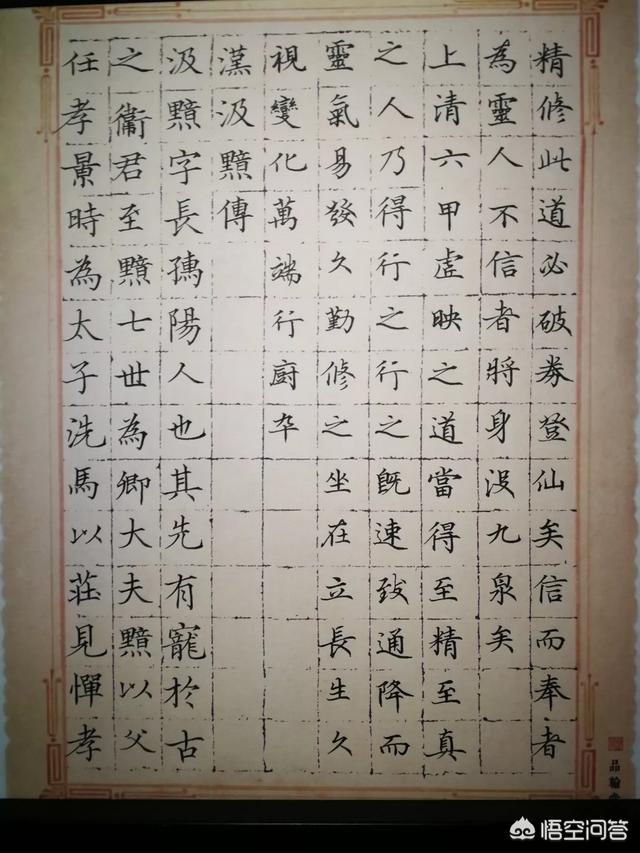 精修此道必破券登仙矣信而奉者
為靈人不信者將身没九泉矣
上清六甲虛映之道當得至精至真
之人乃得行之行之既速致通降而
靈氣易發久勤修之坐在立長生久
視變化萬端行廚卒
漢汲黯傳
汲黯字長孺陽人也其先有寵於古
之衛君至黯七世為卿大夫黯以父
任孝景時為太子洗馬以莊見憚孝
品翰
悟空问答